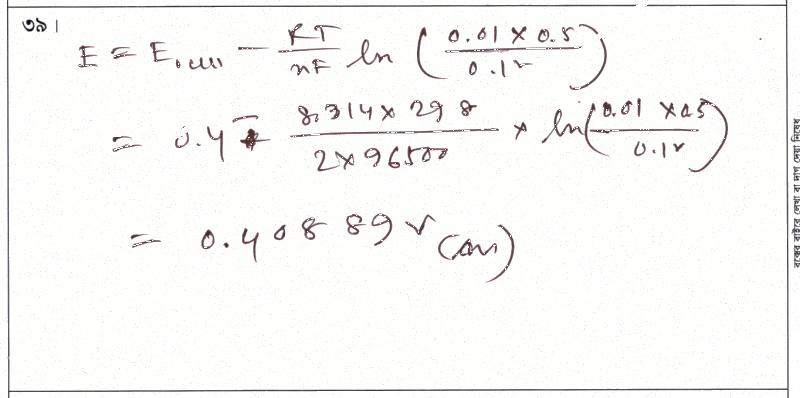 ৩৯।
E = E. cell − RT/nF ln (0.01 × 0.5 / 0.1२)
= 0.4 − 8.314 × 298 / 2 × 96500 × ln (0.01 × 0.5 / 0.1२)
= 0.40889 v (Ans)
বক্সের বাইরে লেখা বা দাগ দেয়া নিষেধ